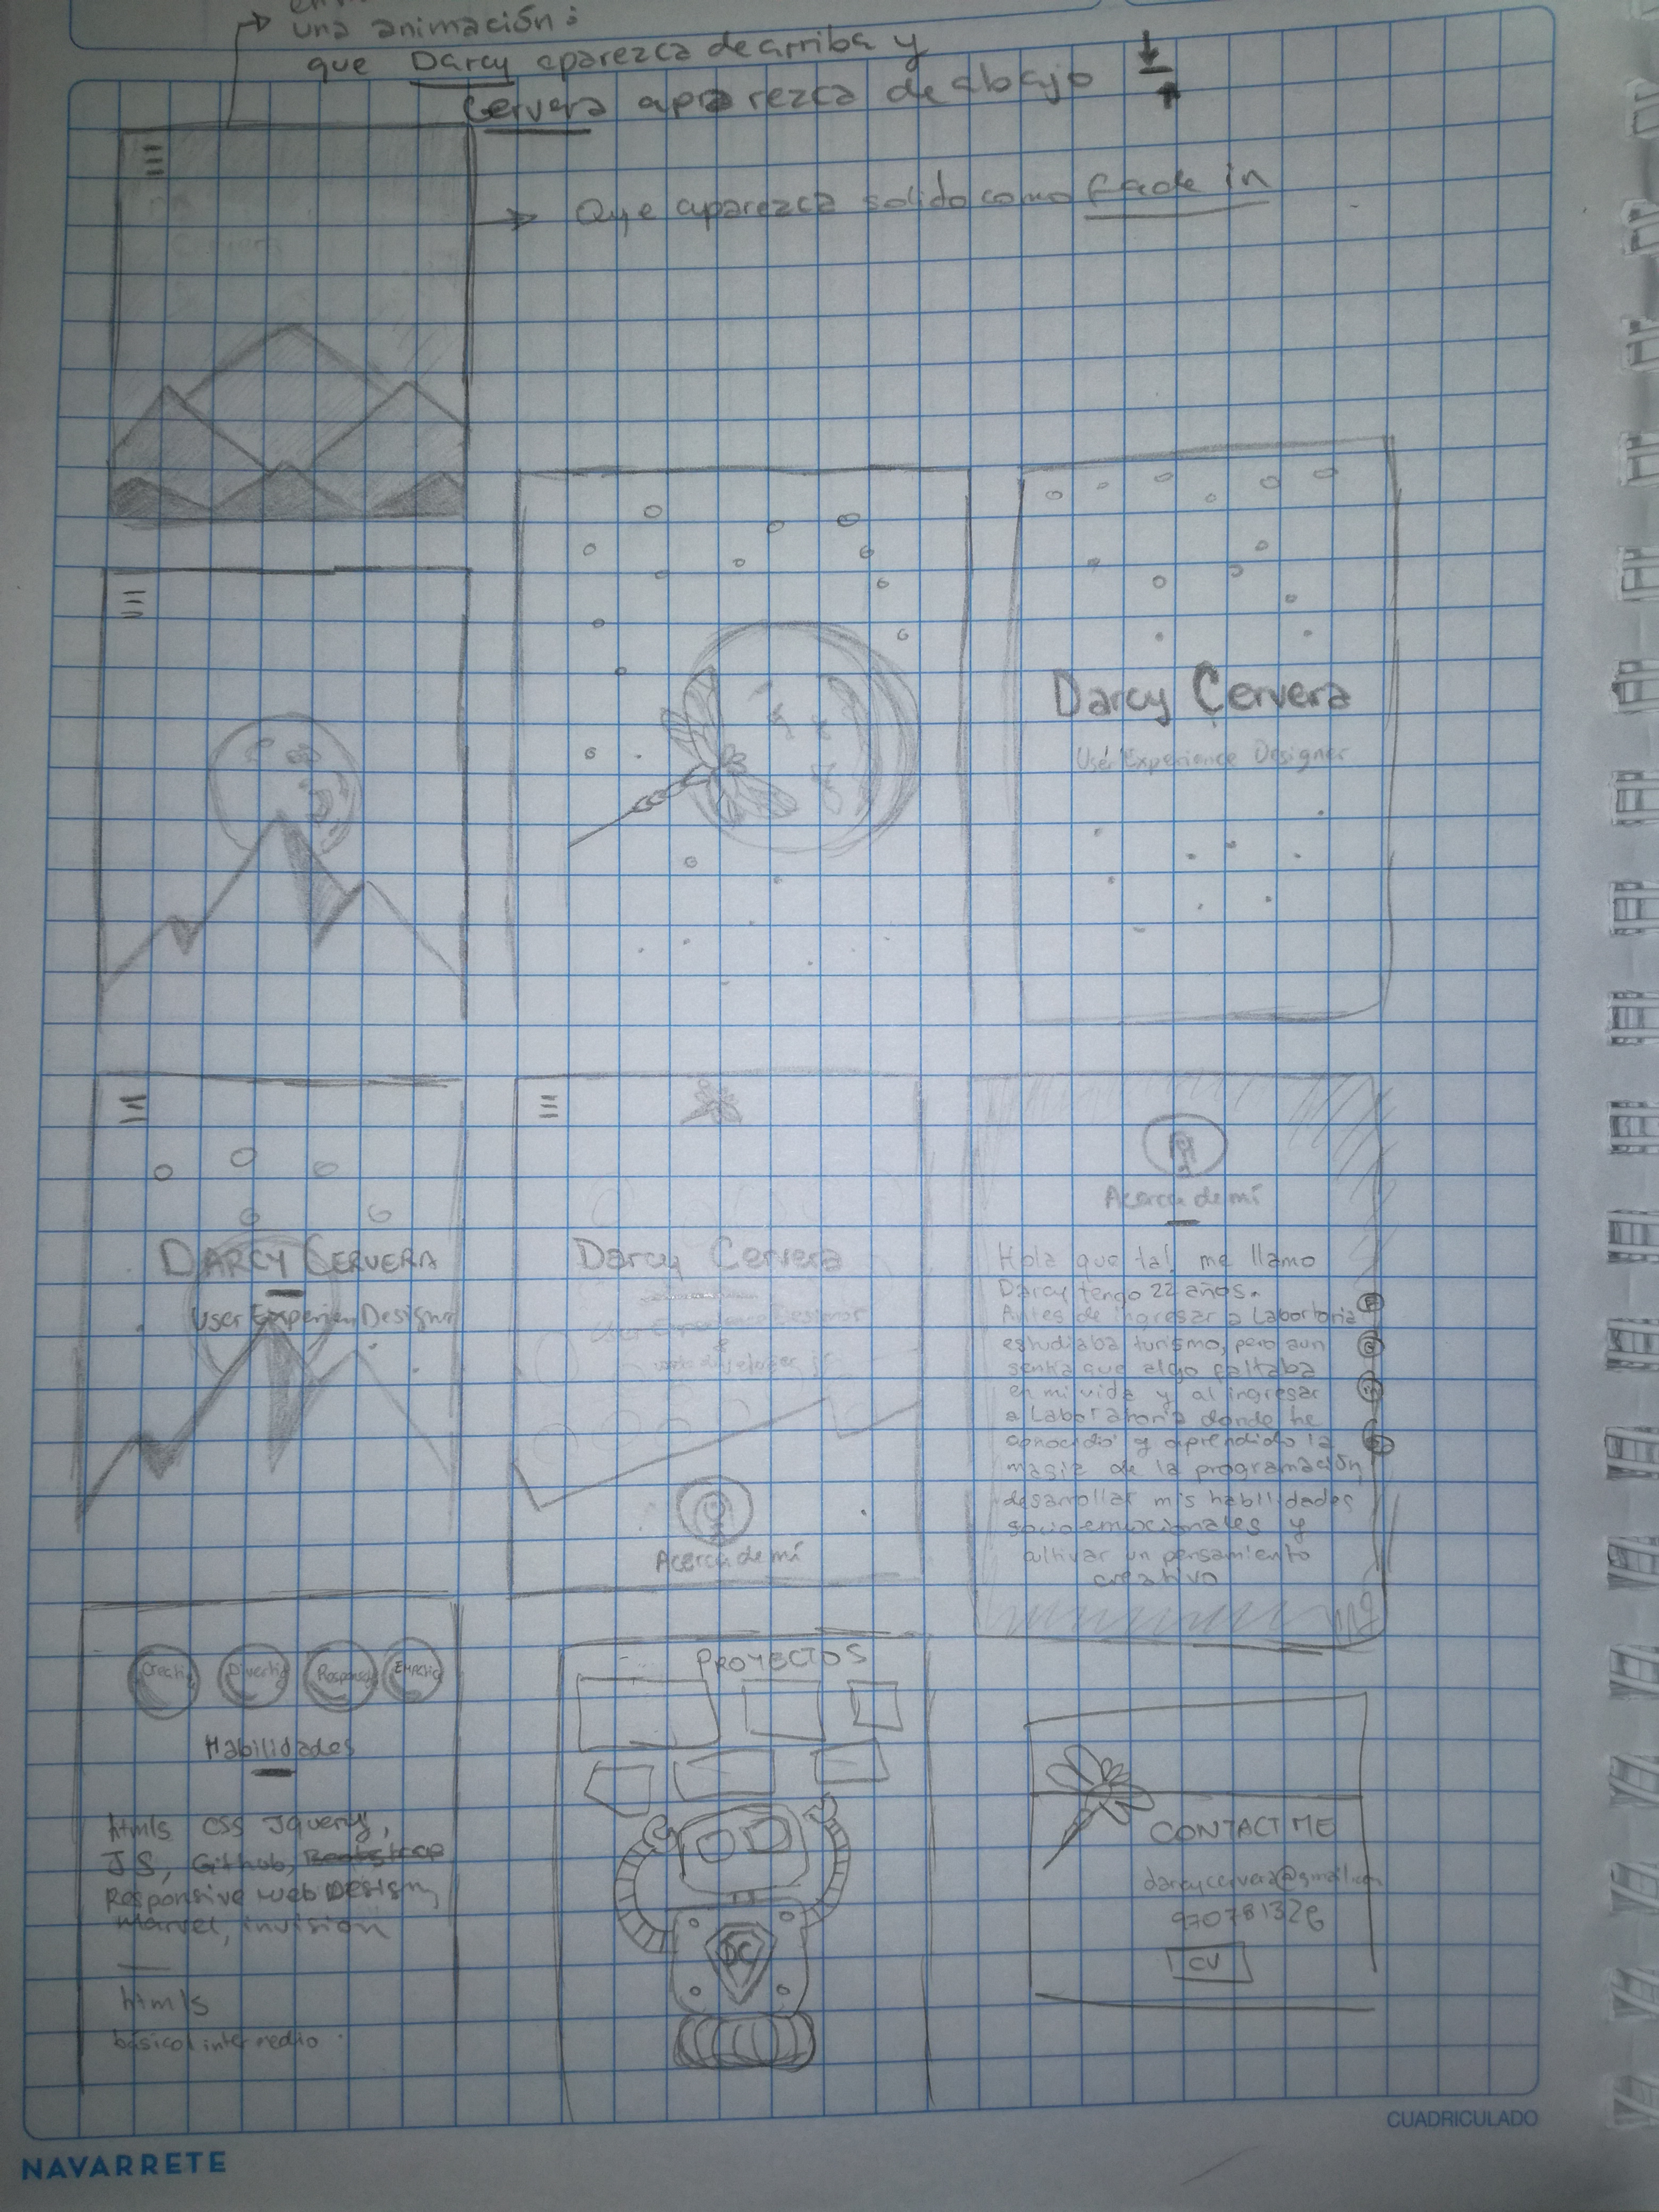 una animación:
que Darcy aparezca de arriba y
Cervera aparezca de abajo
Que aparezca solido como fade in
Cervera
Darcy Cervera
User Experience Designer
DARCY CERVERA
User Experien Designer
Darcy Cervera
User Experience Designer
&
Acerca de mí
Acerca de mí
Hola que tal, me llamo
Darcy tengo 22 años.
Antes de ingresar a Laboratoria
estudiaba turismo, pero aun
sentía que algo faltaba
en mi vida y al ingresar
a Laboratoria donde he
conocido y aprendido la
magia de la programación,
desarrollar mis habilidades
socio-emocionales y
cultivar un pensamiento
creativo
Habilidades
html5 CSS Jquery,
JS, Github, Bootstrap
Responsive web Design,
Marvel, invision
html5
básico intermedio
PROYECTOS
DC
CONTACT ME
darcycervera@gmail.com
CV
NAVARRETE
CUADRICULADO